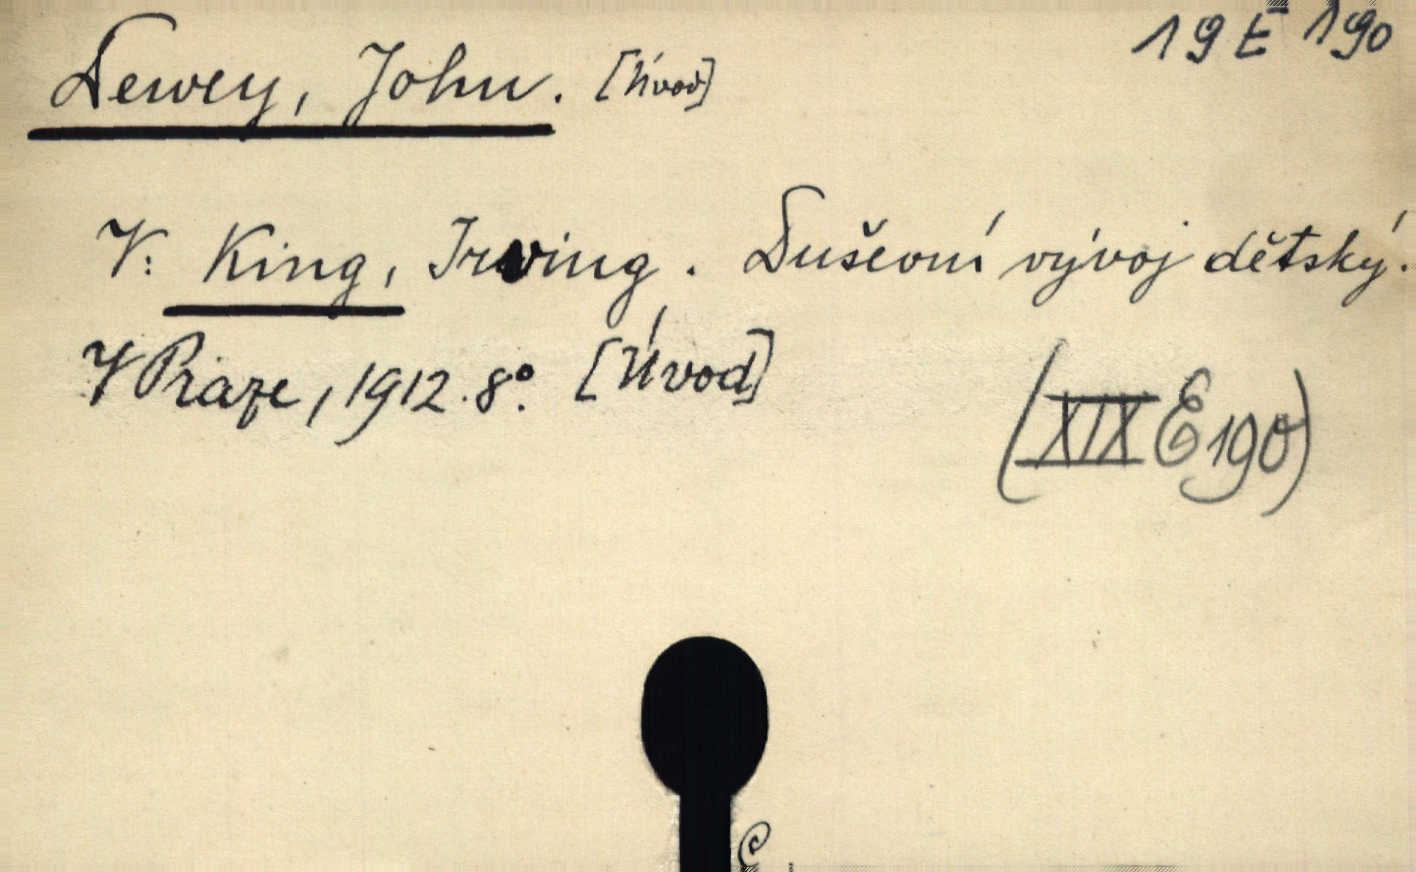 19 E 190
Dewey, John. [Úvod]
V: King, Irving. Duševní vývoj dětský.
V Praze, 1912. 8º. [Úvod]
(XIX E 190)